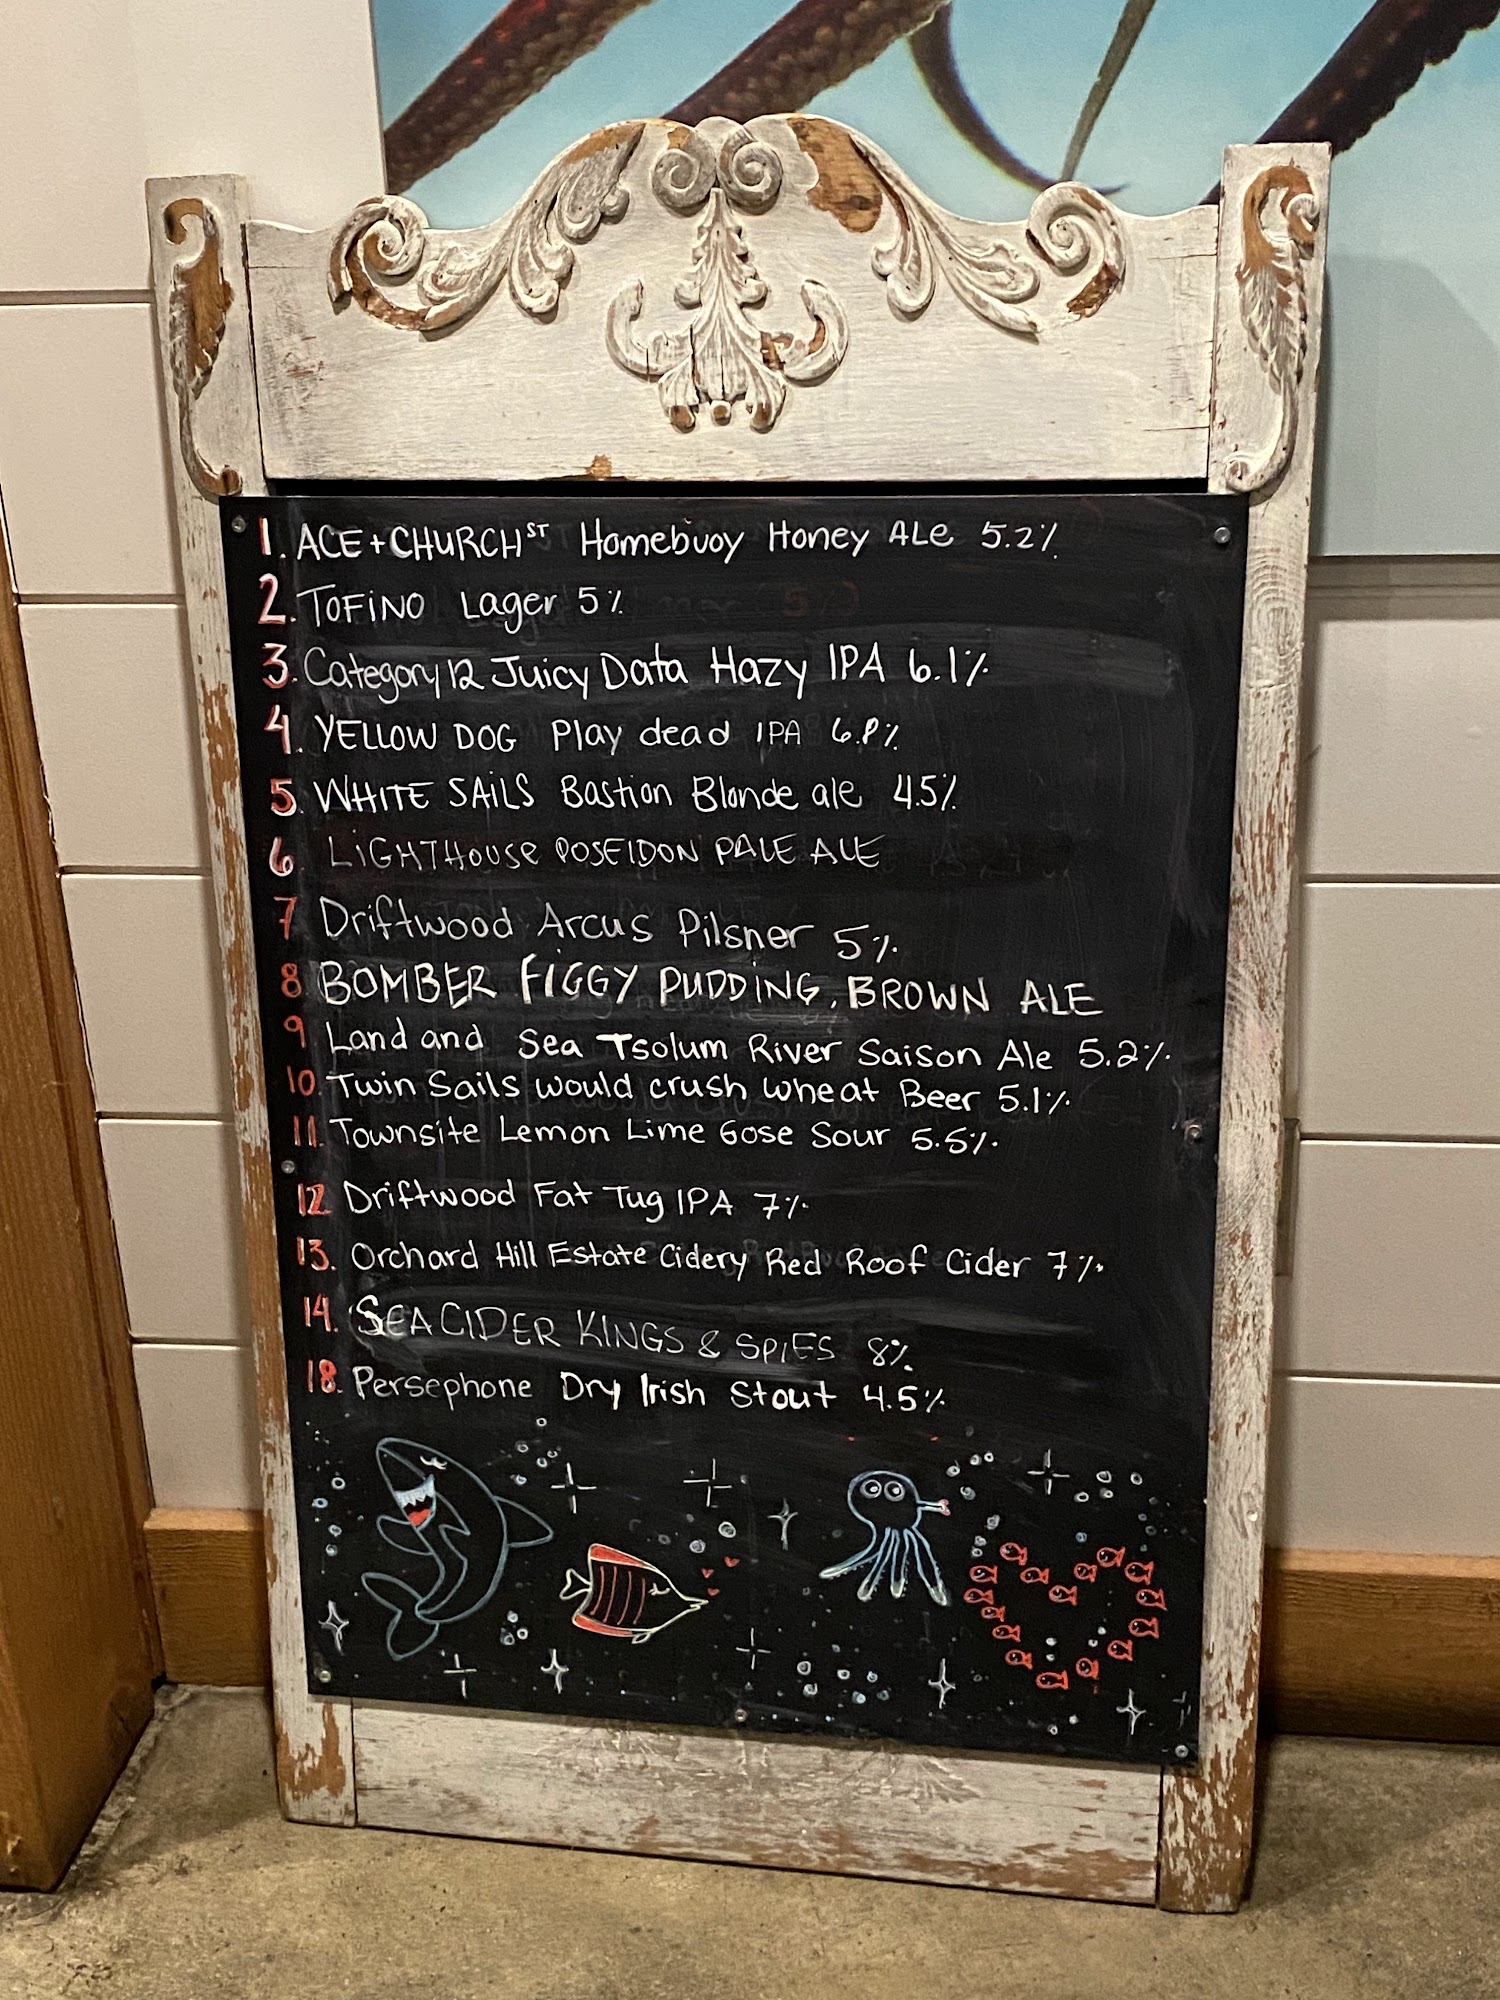 1. ACE + CHURCH ST Homebuoy Honey ALe 5.2%
2. TOFINO Lager 5%
3. Category 12 Juicy Data Hazy IPA 6.1%
4. YELLOW DOG Play dead IPA 6.8%
5. WHITE SAILS Bastion Blonde ale 4.5%
6 LIGHTHOUSE POSEIDON PALE ALE
7 Driftwood Arcus Pilsner 5%
8 BOMBER FIGGY PUDDING, BROWN ALE
9 Land and Sea Tsolum River Saison Ale 5.2%
10. Twin Sails would crush wheat Beer 5.1%
11. Townsite Lemon Lime Gose Sour 5.5%
12. Driftwood Fat Tug IPA 7%
13. Orchard Hill Estate Cidery Red Roof Cider 7%
14. SEA CIDER KINGS & SPIES 8%
18. Persephone Dry Irish Stout 4.5%